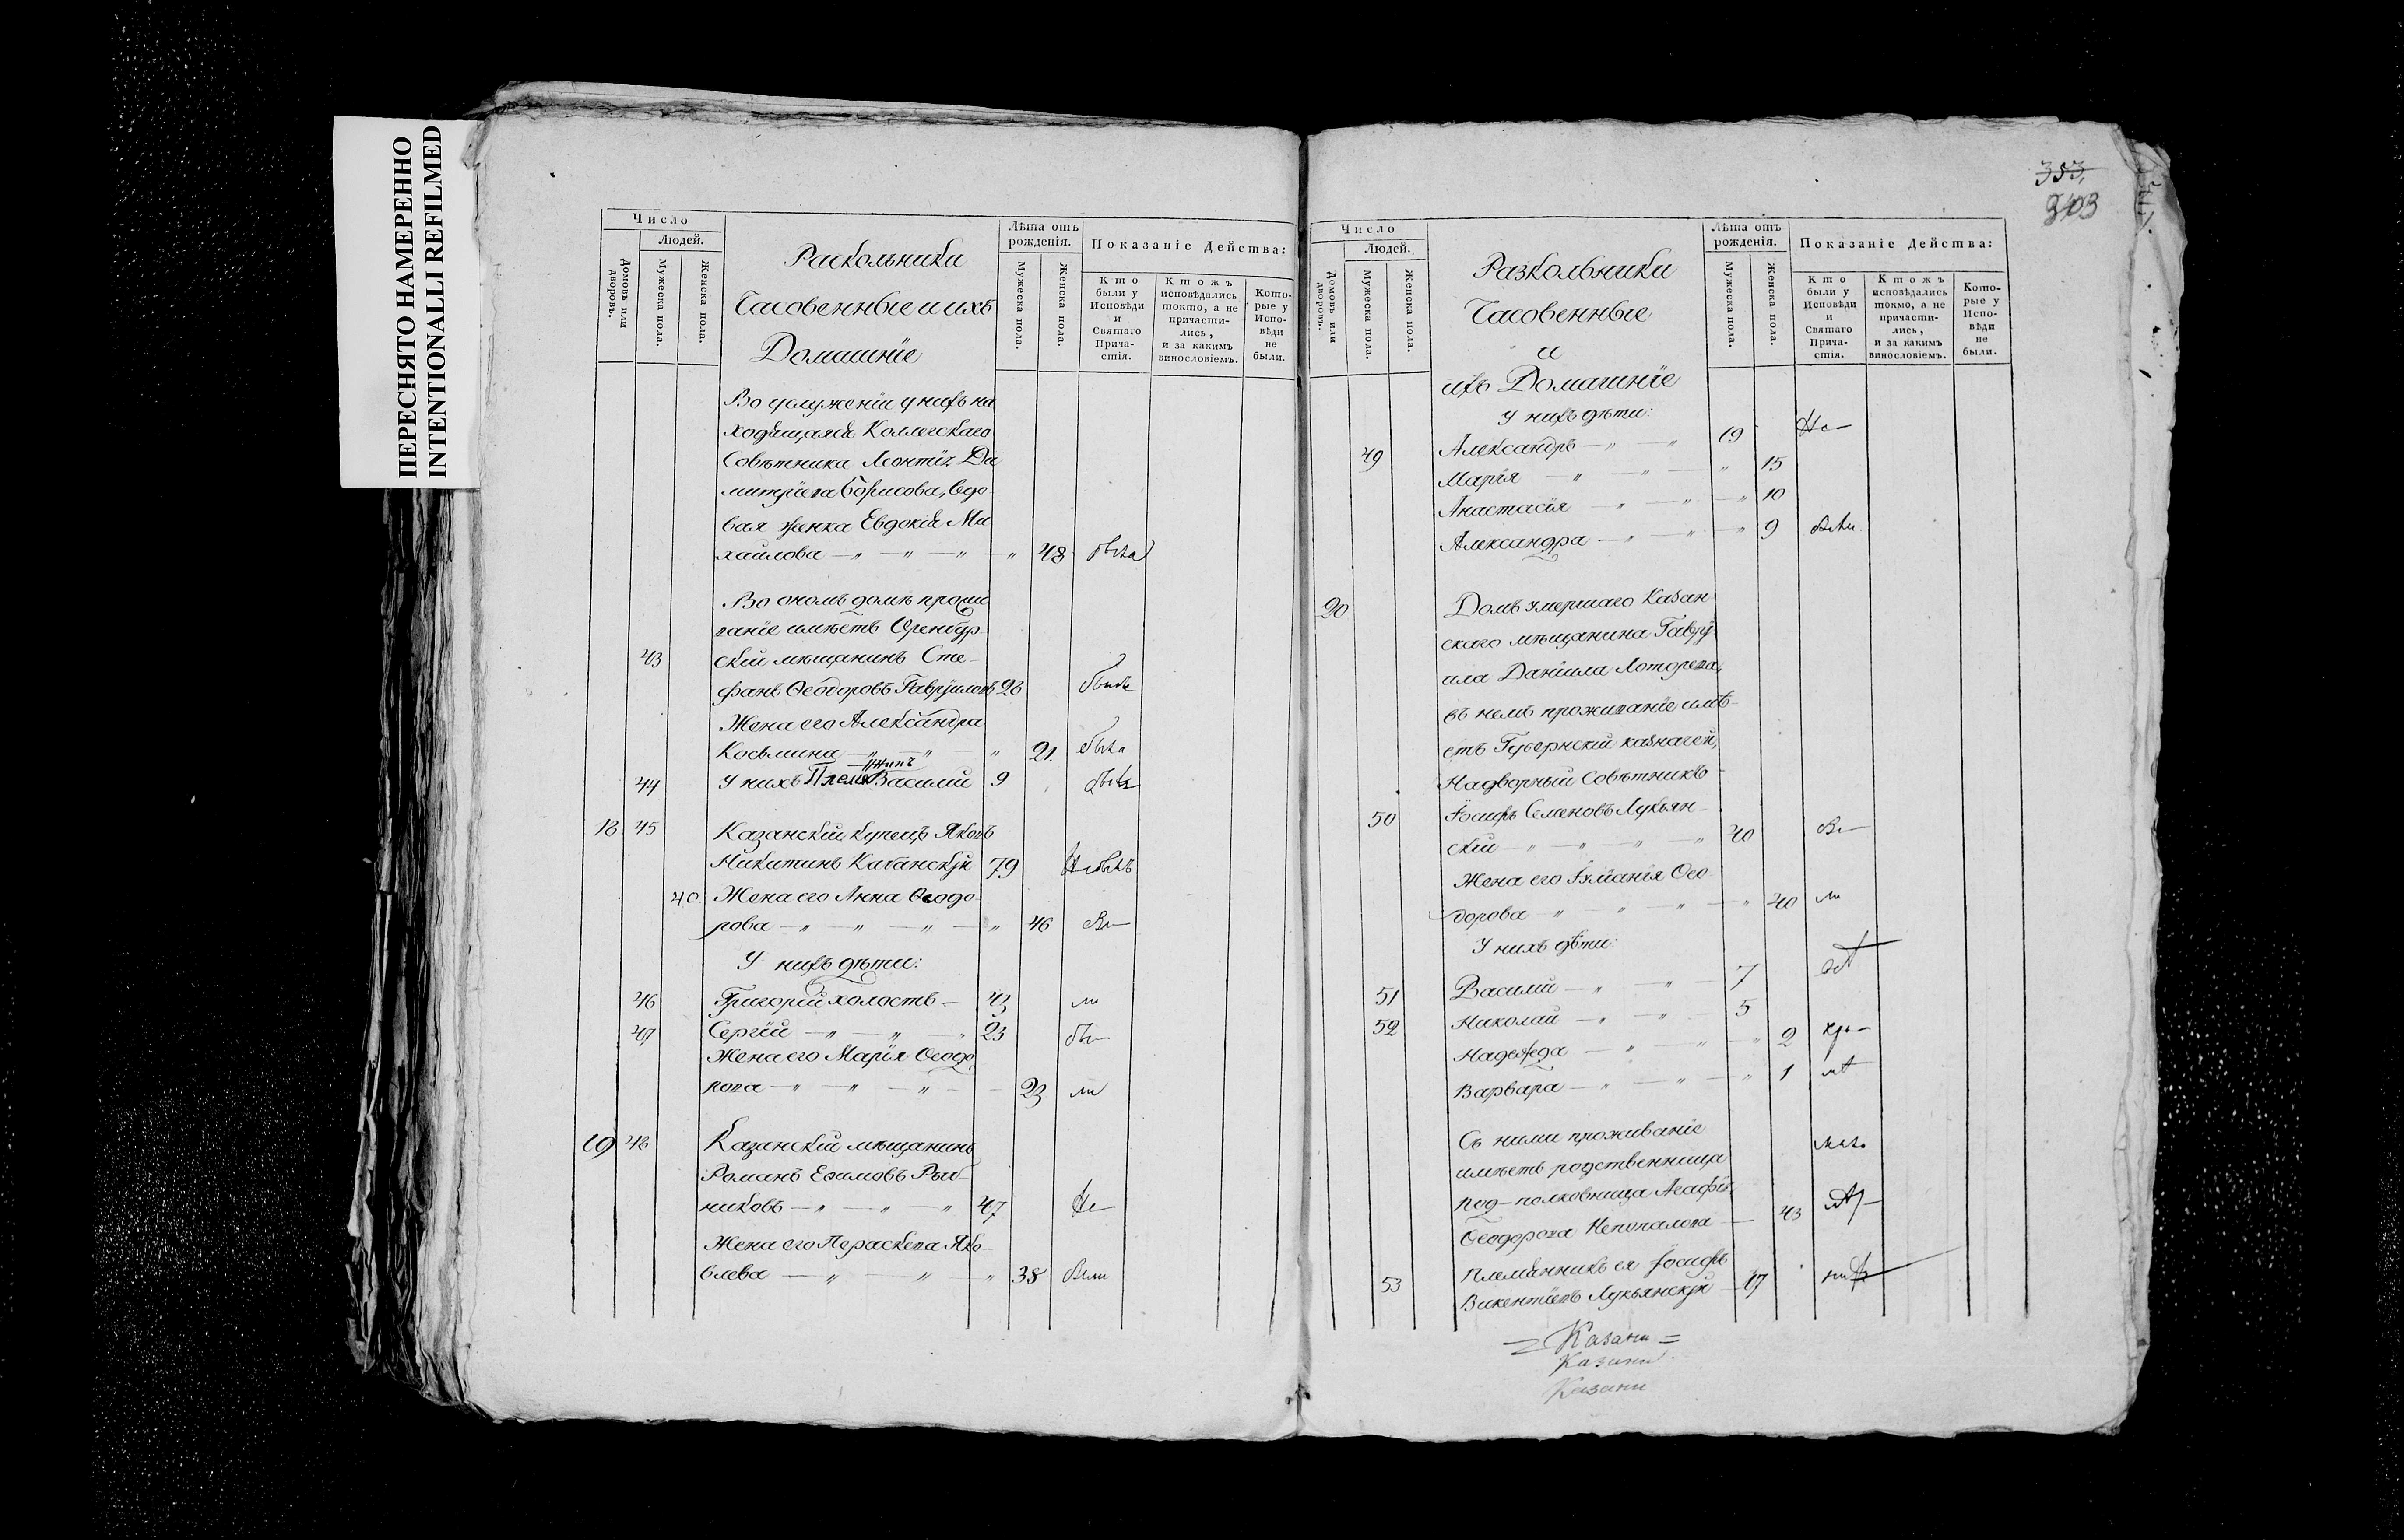 ПЕРЕСНЯТО НАМЕРЕННО
INTENTIONALLI REFILMED
Число
Людей.
Домовъ или дворовъ.
Мужеска пола.
Женска пола.
Раскольники
Часовенные и ихъ
Домашніе
Лѣта отъ рожденія.
Мужеска пола.
Женска пола.
Показаніе Действа:
Кто были у Исповѣди и Святаго Прича-стія.
Ктожъ исповѣдались токмо, а не причасти-лись, и за какимъ винословіемъ.
Кото-рые у Испо-вѣди не были.
Во услуженіи у нихъ на
ходящаяся Коллегскаго
Совѣтника Леонтія Ди
митріева Борисова, вдо
вая женка Евдокія Ми
хайлова 48 была
Во ономъ домѣ прожи
ваніе имѣетъ Оренбур-
43 скій мѣщанинъ Сте-
фанъ Ѳеодоровъ Гавриловъ 23
Жена его Александра
Косьмина 21. была
44 У нихъ Племянникъ Василій 9
18 45 Казанскій купецъ Яковъ
Никитинъ 79 Небылъ
40 Жена его Анна Ѳеодо-
рова 46
У нихъ дѣти:
46 Григорій холостъ 43 ли
47 Сергій 23 бы-
Жена его Марія Ѳеодо
рова 23 ли
19 48 Казанскій мѣщанинъ
Романъ Ефимовъ Рыб-
никовъ 47 Не
Жена его Параскева Яко-
влева 38 были
353,
Число
Людей.
Домовъ или дворовъ.
Мужеска пола.
Женска пола.
Разкольники
Часовенные
и
ихъ Домашніе
Лѣта отъ рожденія.
Мужеска пола.
Женска пола.
Показаніе Действа:
Кто были у Исповѣди и Святаго Прича-стія.
Ктожъ исповѣдались токмо, а не причасти-лись, и за какимъ винословіемъ.
Кото-рые у Испо-вѣди не были.
У нихъ дѣти:
49 Александръ 19 Не
Марія 15
Анастасія 10
Александра 9 были.
20 Домъ умершаго Казан
скаго мѣщанина Гаврі-
ила Даніила
въ немъ проживаніе имѣ-
етъ Губернскій казначей,
Надворный Совѣтникъ
50 Іосифъ Семеновъ Лукьян-
скій 40
Жена его Ѳео-
дорова 40 ли
У нихъ дѣти:
51 Василій 7
52 Николай 5
Надежда 2
Варвара 1
Съ ними проживаніе
имѣетъ родственница
под-полковница Агафія
Ѳеодорова 43
Племянникъ ея Іосифъ
53 Викентіевъ Лукьянскій 17
Казани
Казани
Казани